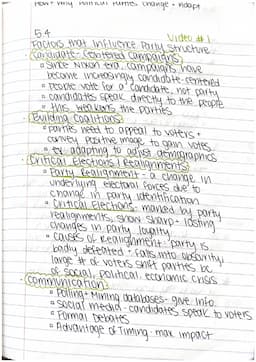 How + Why Political Parties Change + Adapt
5.4
Video #1
Factors that Influence Party Structure
Candidate-Centered Campaigns
• Since Nixon era, campaigns have
become increasingly candidate-centered
• People vote for a candidate, not party
• candidates speak directly to the people
• this weakens the parties
Building Coalitions
• Parties need to appeal to voters +
convey positive image to gain votes
• ex. adapting to adjust demographics
Critical Elections / Realignments
• Party Realignment: a change in
underlying electoral forces due to
change in party identification
• Critical Elections: marked by party
realignments, show sharp + lasting
changes in party loyalty
• Causes of Realignment: party is
badly defeated + falls into obscurity,
large # of voters shift parties bc
of social, political, economic crisis
Communication
• Polling + Mining databases- give info.
• Social media - candidates speak to voters
• Formal Debates
• Advantage of Timing - max impact